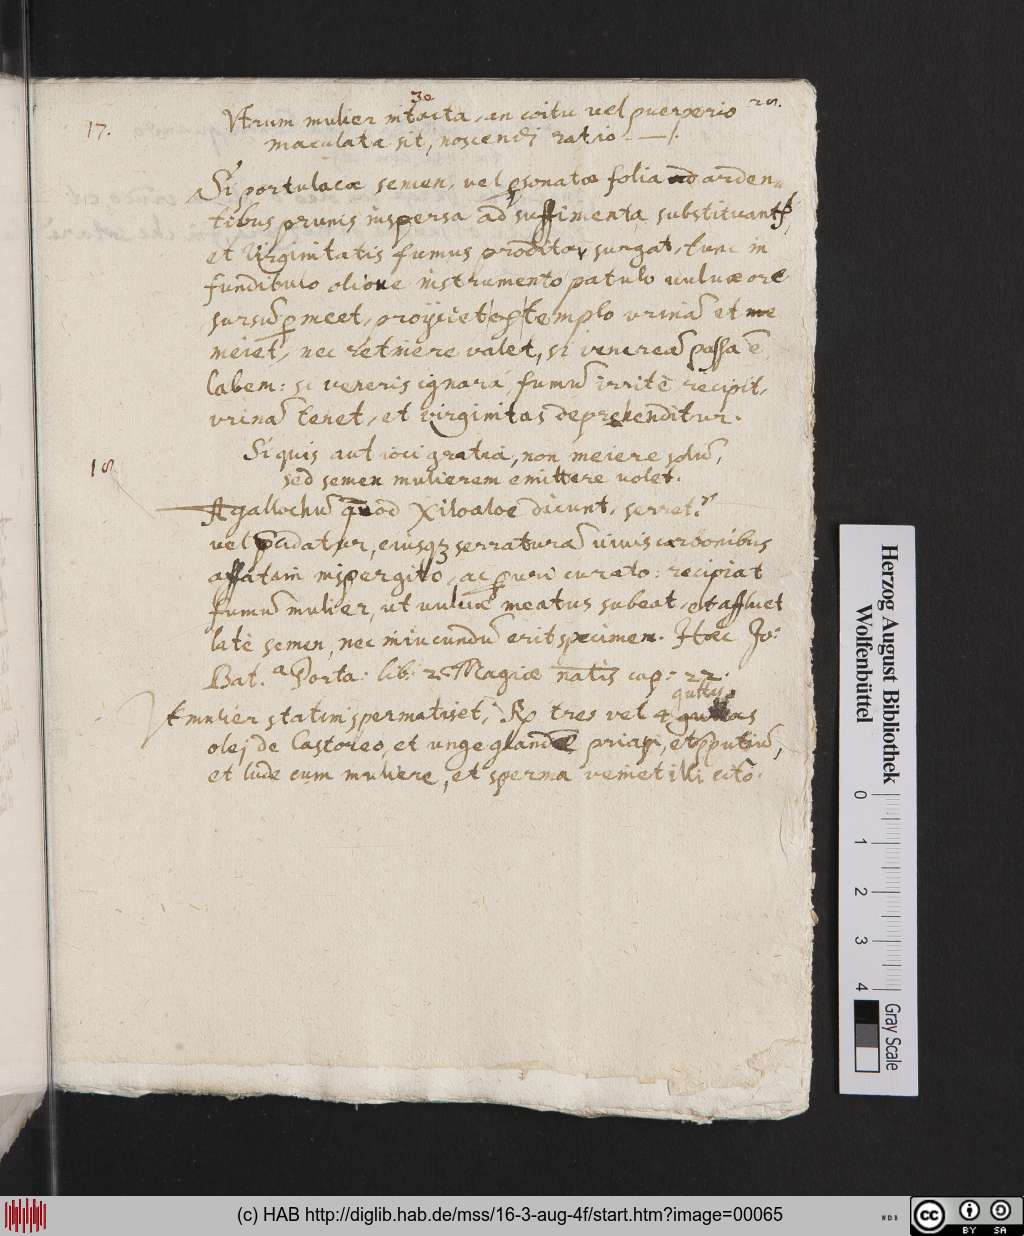 30
25.
17.
Vtrum mulier intacta, an coitu vel puerperio
maculata sit, noscendi ratio.
Si portulacæ semen, vel psonatæ folia ad arden-
tibus prunis inspersa ad suffimenta substituantr,
et Virginitatis fumus proditor surgat, tunc in
fundibulo olione instrumento patulo vuluæ ore
sursũ pmeet, proijciet extemplo vrinã et
meiet, nec retinere valet, si venereã passa ē
labem: si veneris ignara fumũ irritē recipit,
vrinã tenet, et virginitas deprehenditur.
18
Si quis aut ioci gratia, non meiere solũ,
sed semen mulierem emittere volet.
Agallochũ quod Xiloaloe dicunt, serret.r
vel pcidatur, eiusqz serraturã viuis carbonibus
affatim inspergito, ac puri curato: recipiat
fumũ mulier, ut vuluæ meatus subeat, et affluet
latè semen, nec iniucundũ erit specimen. Hæc Jo:
Bat.a Porta. lib: 2. Magiæ natis cap: 22.
guttas
Vt mulier statim spermatiset, Rp tres vel 4
olej de Castoreo, et unge glandē priapi, et pputiũ,
et lude cum muliere, et sperma veniet illi cito.
Herzog August Bibliothek
Wolfenbüttel
0 1 2 3 4
Gray Scale
(c) HAB http://diglib.hab.de/mss/16-3-aug-4f/start.htm?image=00065
cc BY SA